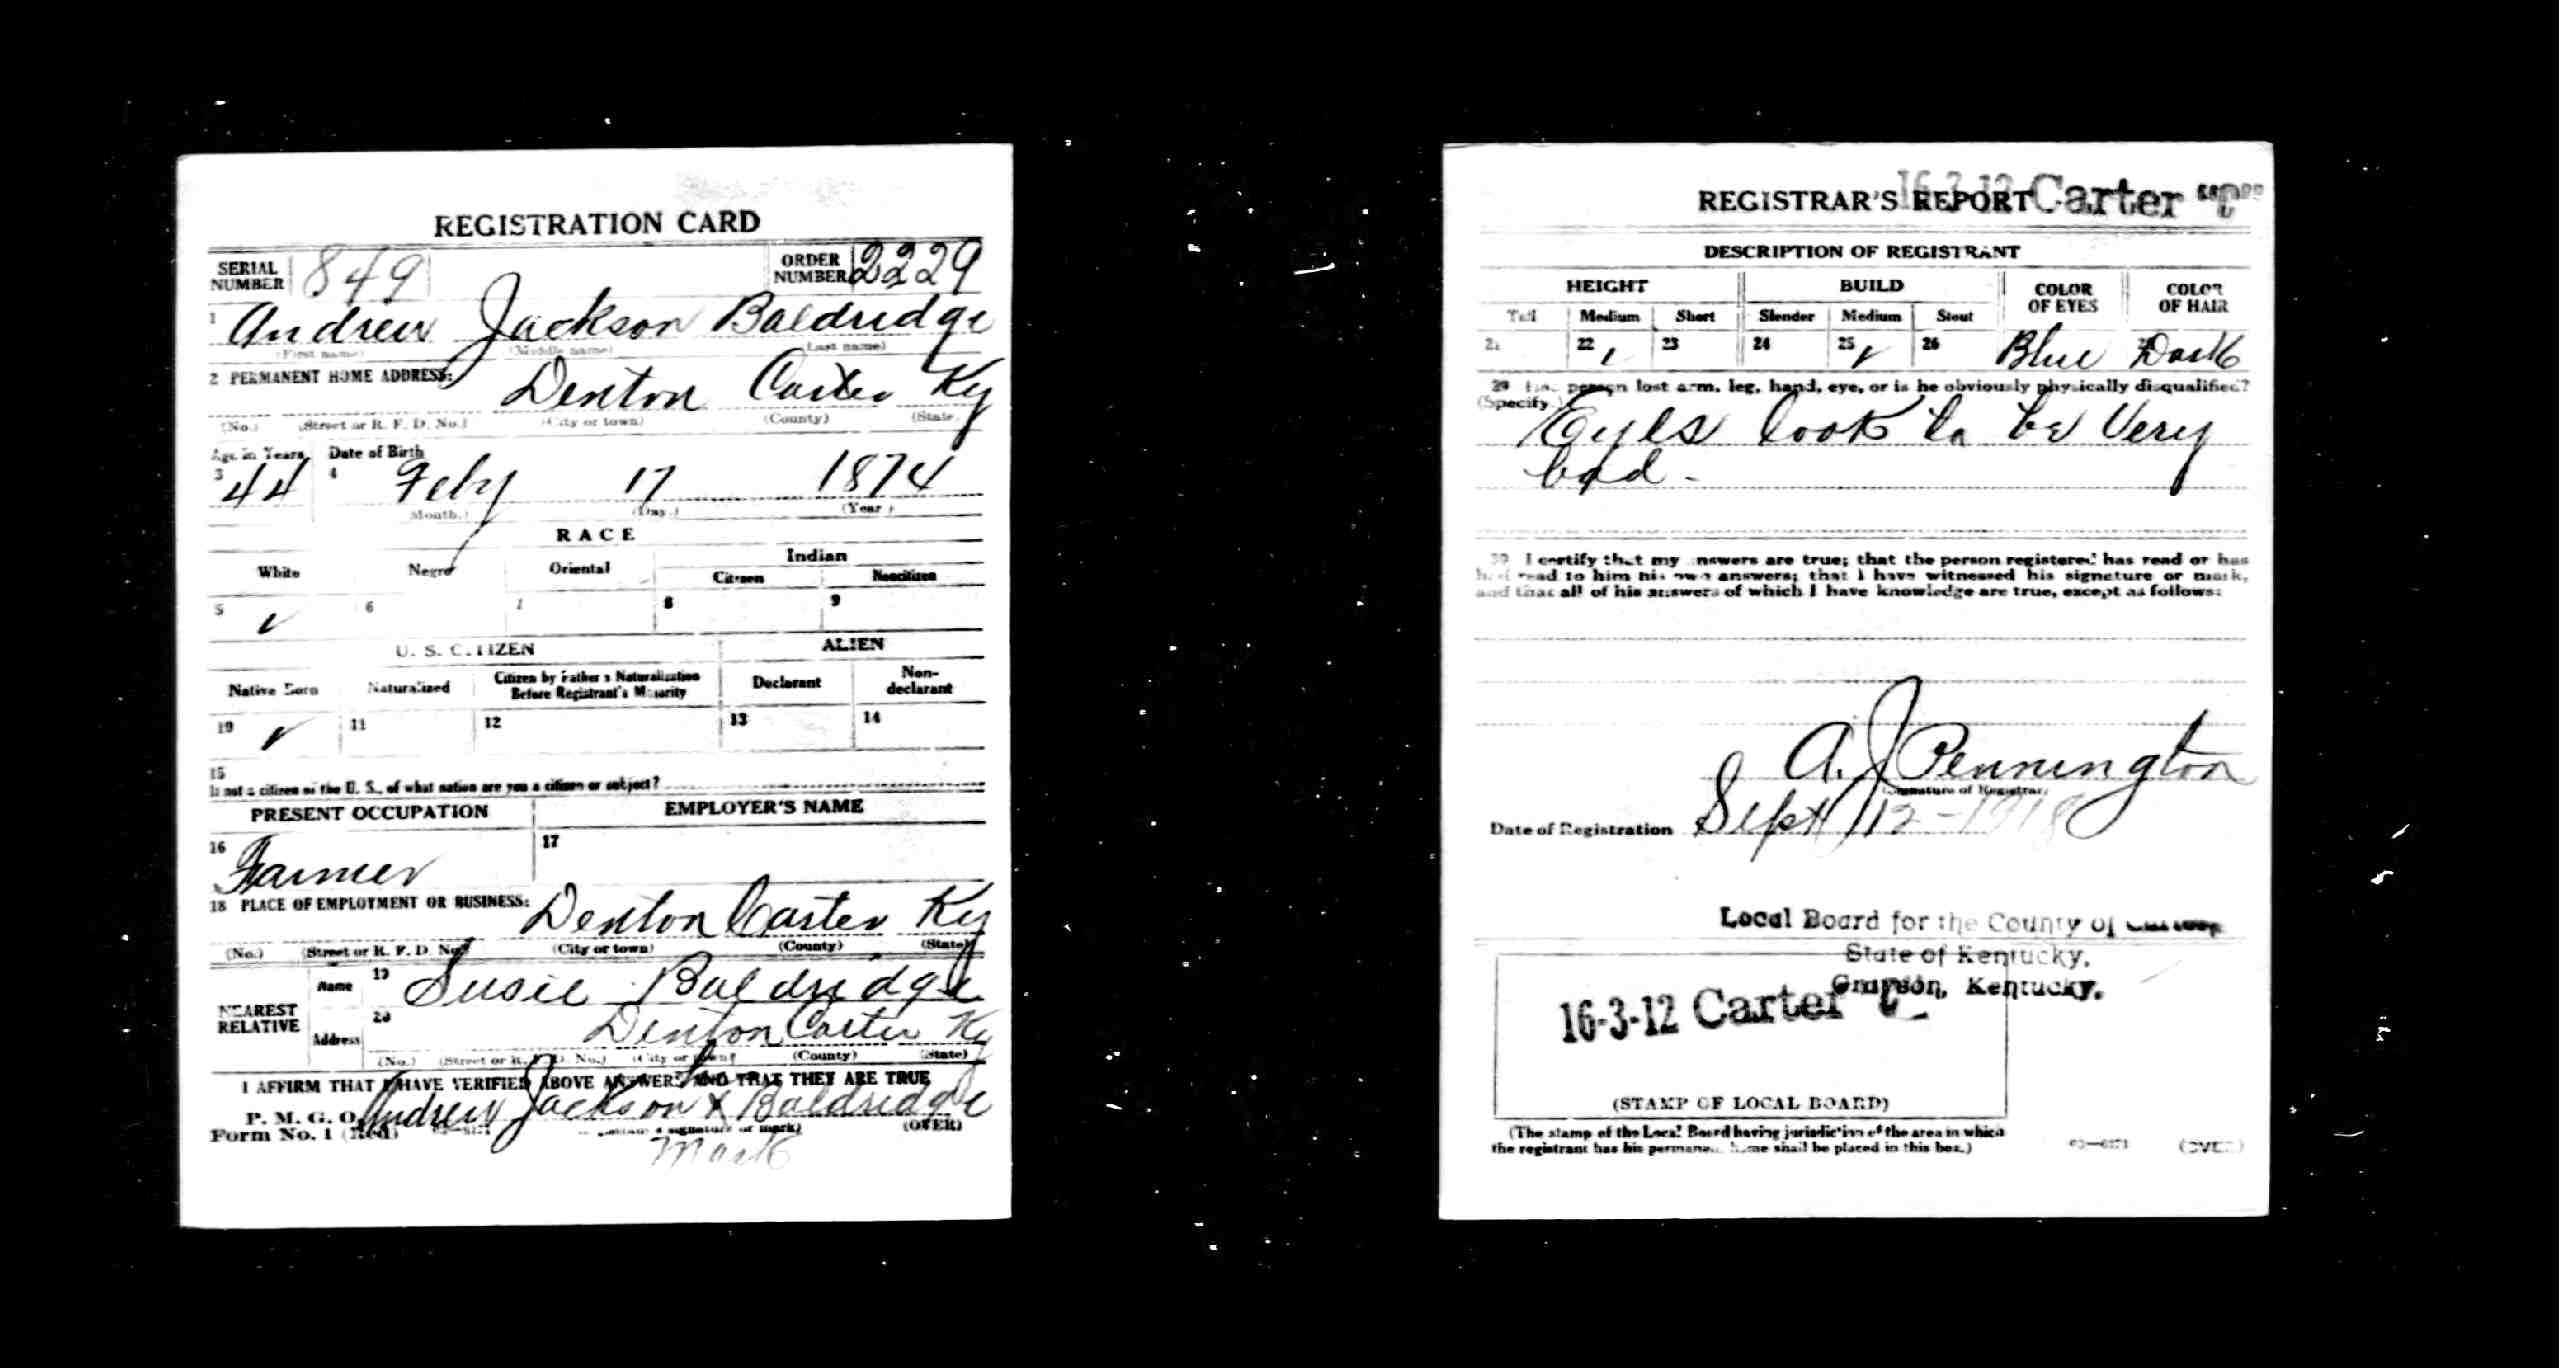 REGISTRATION CARD
SERIAL NUMBER 849 ORDER NUMBER 2229
1 Andrew Jackson Baldridge
(First name) (Middle name) (Last name)
2 PERMANENT HOME ADDRESS: Denton Carter Ky
(No.) (Street or R. F. D. No.) (City or town) (County) (State)
Age in Years Date of Birth
3 44 4 Feby 17 1874
(Month.) (Day.) (Year)
RACE
White Negro Oriental Indian
Citizen Noncitizen
5 ✓ 6 7 8 9
U. S. CITIZEN ALIEN
Native Born Naturalized Citizen by Father's Naturalization Before Registrant's Majority Declarant Non-declarant
10 ✓ 11 12 13 14
15
If not a citizen of the U. S., of what nation are you a citizen or subject?
PRESENT OCCUPATION EMPLOYER'S NAME
16 Farmer 17
18 PLACE OF EMPLOYMENT OR BUSINESS: Denton Carter Ky
(No.) (Street or R. F. D. No.) (City or town) (County) (State)
NEAREST RELATIVE Name 19 Susie Baldridge
Address 20 Denton Carter Ky
(No.) (Street or R. F. D. No.) (City or town) (County) (State)
I AFFIRM THAT I HAVE VERIFIED ABOVE ANSWERS AND THAT THEY ARE TRUE
P. M. G. O. Andrew Jackson x Baldridge
Form No. 1 (Red) (Registrant's signature or mark) (OVER)
Mark
REGISTRAR'S REPORT 16-3-12 Carter
DESCRIPTION OF REGISTRANT
HEIGHT BUILD COLOR OF EYES COLOR OF HAIR
Tall Medium Short Slender Medium Stout
21 22 ✓ 23 24 25 ✓ 26 Blue Dark
29 Has person lost arm, leg, hand, eye, or is he obviously physically disqualified?
(Specify.) Eyes look to be Very
bad.
30 I certify that my answers are true; that the person registered has read or has
had read to him his own answers; that I have witnessed his signature or mark,
and that all of his answers of which I have knowledge are true, except as follows:
A. J Pennington
(Signature of Registrar)
Date of Registration Sept 12-1918
Local Board for the County of
State of Kentucky,
Grayson, Kentucky.
16-3-12 Carter C
(STAMP OF LOCAL BOARD)
(The stamp of the Local Board having jurisdiction of the area in which
the registrant has his permanent home shall be placed in this box.)
(OVER)